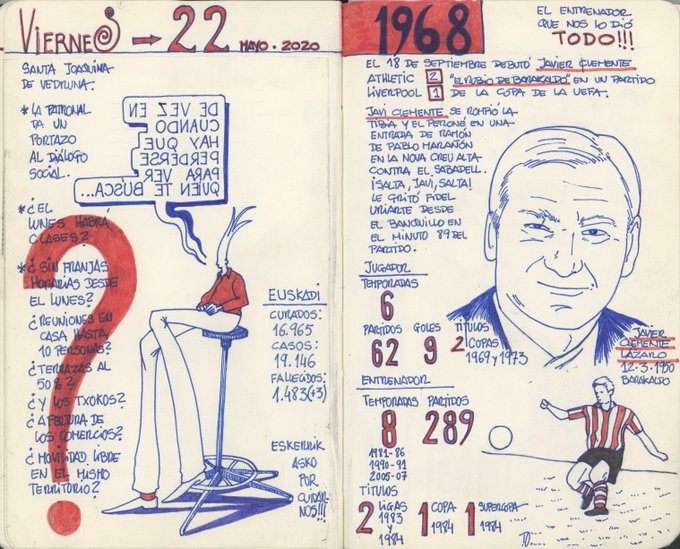 VIERNES → 22 MAYO·2020
SANTA JOAQUINA
DE VEDRUNA.
* LA PATRONAL
DA UN
PORTAZO
AL DIÁLOGO
SOCIAL.
* ¿EL
LUNES HABRÁ
CLASES?
* ¿SIN FRANJAS
HORARIAS DESDE
EL LUNES?
¿REUNIONES EN
CASA HASTA
10 PERSONAS?
¿TERRAZAS AL
50%?
¿Y LOS TXOKOS?
¿APERTURA DE
LOS COMERCIOS?
¿MOVILIDAD LIBRE
EN EL MISMO
TERRITORIO?
?
DE VEZ EN
CUANDO
HAY QUE
PERDERSE
PARA VER
QUIEN TE BUSCA...
EUSKADI
CURADOS:
16.965
CASOS:
19.146
FALLECIDOS:
1.483(+3)
ESKERRIK
ASKO
POR
CUIDAR-
NOS!!!
1968
EL ENTRENADOR
QUE NOS LO DIÓ
TODO!!!
EL 18 DE SEPTIEMBRE DEBUTÓ JAVIER CLEMENTE
ATHLETIC 2 "EL RUBIO DE BARAKALDO" EN UN PARTIDO
LIVERPOOL 1 DE LA COPA DE LA UEFA.
JAVI CLEMENTE SE ROMPIÓ LA
TIBIA Y EL PERONÉ EN UNA
ENTRADA DE RAMÓN
DE PABLO MARAÑÓN
EN LA NOVA CREU ALTA
CONTRA EL SABADELL.
¡SALTA, JAVI, SALTA!
LE GRITÓ FIDEL
URIARTE DESDE
EL BANQUILLO EN
EL MINUTO 89 DEL
PARTIDO.
JUGADOR
TEMPORADAS
6
PARTIDOS GOLES TÍTULOS
62 9 2 COPAS
1969 Y 1973
JAVIER
CLEMENTE
LÁZARO
12·3·1950
BARAKALDO
ENTRENADOR
TEMPORADAS PARTIDOS
8 289
1981-86
1990-91
2005-07
TÍTULOS
2 LIGAS
1983
Y
1984
1 COPA
1984
1 SUPERCOPA
1984